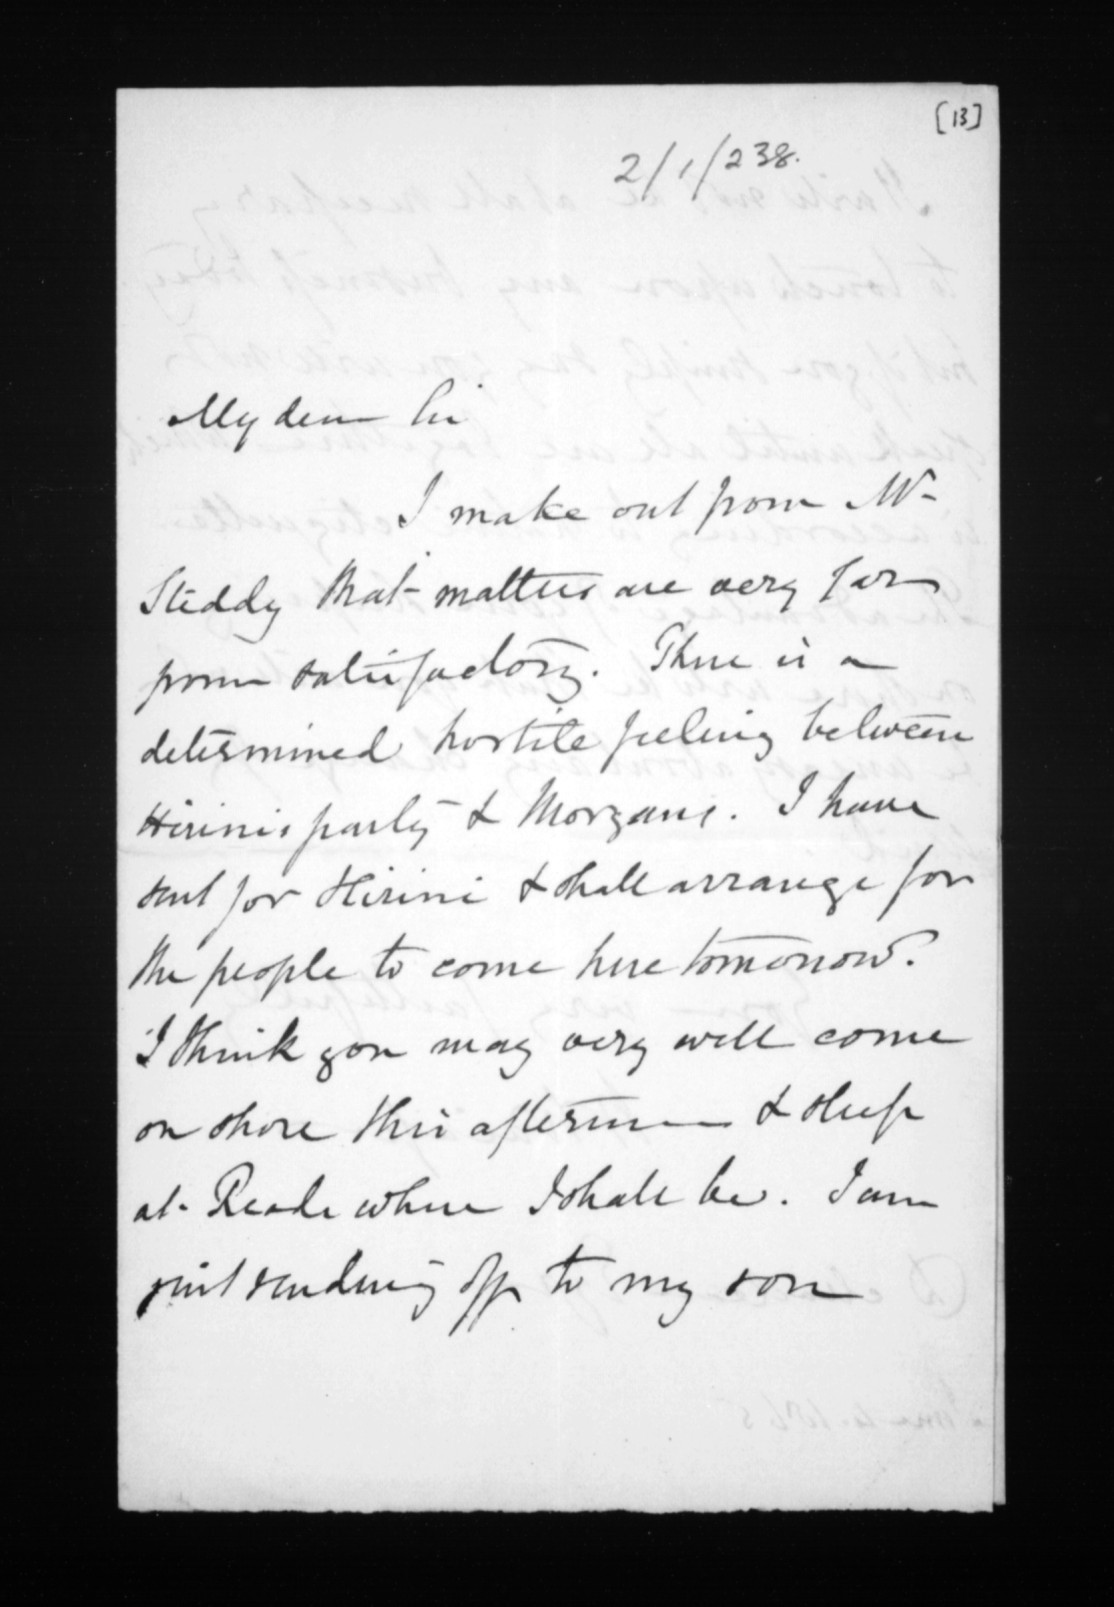 [13]
2/1/238.
My dear Sir
I make out from Mr
Steddy that matters are very far
from satisfactory. There is a
determined hostile feeling between
Hirini's party & Morgans. I have
sent for Hirini & shall arrange for
the people to come here tomorrow.
I think you may very well come
on shore this afternoon & sleep
at Reads where I shall be. I am
just sending off to my son